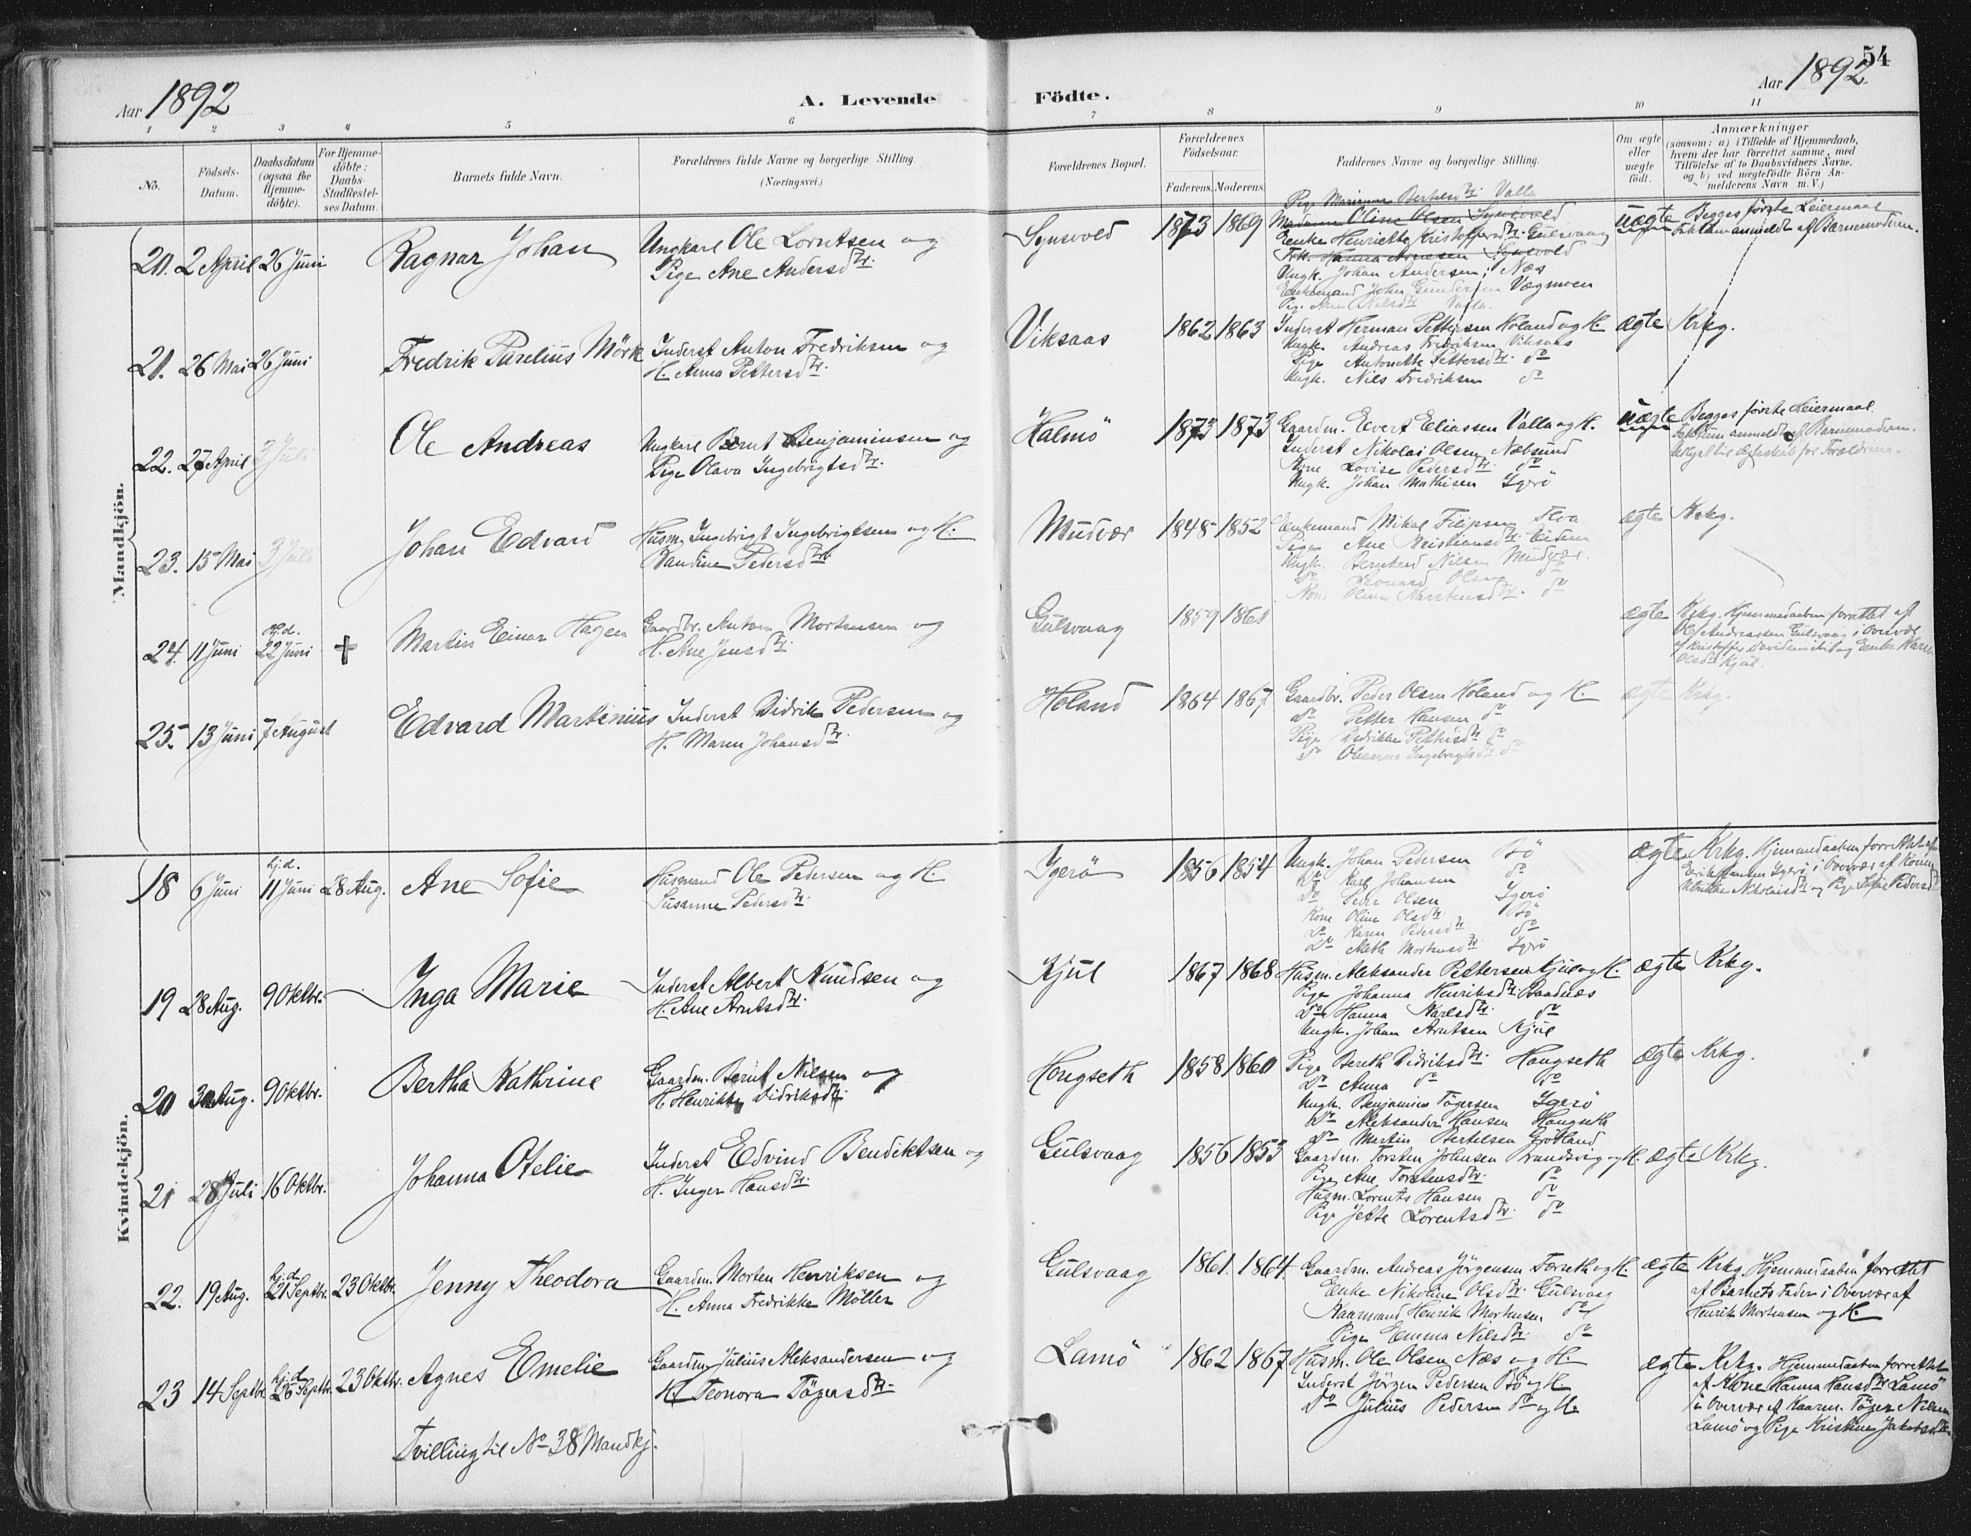 54
Aar 1892
A. Levende Födte.
Aar 1892
1 2 3 4 5 6 7 8 9 10 11
No.
Födsels-Datum.
Daabsdatum (ogsaa for Hjemmedöbte).
For Hjemmedöbte: Daabs Stadfestelses Datum.
Barnets fulde Navn.
Forældrenes fulde Navne og borgerlige Stilling. (Næringsvei.)
Forældrenes Bopæl.
Forældrenes Födselsaar.
Faderens. Moderens.
Faddernes Navne og borgerlige Stilling.
Om ægte eller uægte födt.
Anmærkninger
(saasom: a) i Tilfælde af Hjemmedaab, hvem der har forrettet samme, med Tilföielse af to Daabsvidners Navne, og b) ved uægtefödte Börn Anmelderens Navn m. V.)
Mandkjön.
20. 2 April 26 Juni
Ragnar Johan
Ungkarl Ole Lorntsen og
Pige Ane Andersdtr.
Synsvold
1873 1869
Pige Marianna Bertelsdtr. Valla
Madame Oline Olsen Synsvold
Enke Henriette Kristoffersdtr. Gulsvaag
Frk. Hanna Arnesen Synsvold
Ungk. Johan Andersen, Næs
Enkemand Johan Gundersen Vægmoen
Pige Ane Nilsdtr. Valla.
uægte
Begges første Leiermaal
Faktum anmeldt af Barnemoderen.
21. 26 Mai 26 Juni
Fredrik Parelius Mörk
Inderst Anton Fredriksen og
H. Anna Pettersdtr.
Viksaas
1862 1863
Inderst Herman Pettersen Holand og H.
Ungk. Andreas Fredriksen Viksaas
Pige Antonette Pettersdtr. do
Ungk. Nils Fredriksen do
ægte Krkg.
22. 27 April 3 Juli
Ole Andreas
Ungkarl Bernt Benjaminsen og
Pige Olava Ingebrigtsdtr.
Halmö
1873 1873
Gaardm. Evert Eliassen Valla og H.
Inderst Nikolai Olsen Næbsund
Kone Lovise Pedersdtr. do
Ungk. Johan Mathisen Igerö
uægte
Begges første Leiermaal.
Faktum anmeldt af Barnemoderen.
23. 15 Mai 3 Juli
Johan Edvard
Husm. Ingebrigt Ingebrigtsen og H.
Randine Pedersdtr.
Mudvær
1848 1852
Enkemand Mikal Filipsen
Pige Ane Kristiansdtr.
Ungk. Bernhard Nilsen Mudvær.
do Edvard Olsen do
Kone Oline Karstensdtr. do
ægte Krkg.
24. 11 Juni hj.d. 22 Juni +
Martin Einar Hagen
Gaardbr. Anton Mortensen og
H. Ane Jensdtr.
Gulsvaag
1859 1861
ægte
Krkg. Hjemmedaaben forrettet af
Ole Andreassen Gulsvaag i Overvær
af Kristoffer Davidsen og Enke Karen
Olsdtr. Kjul.
25. 13 Juni 7 August
Edvard Martinius
Inderst Didrik Pedersen og
H. Maren Johansdtr.
Holand
1864 1867
Gaardbr. Peder Olsen Holand og H.
do Petter Hansen do
Pige Didrikke Pettersdtr. do
do Oleanna Ingebrigtsdtr. do
ægte Krkg.
Kvindekjön.
18 6 Juni hj.d. 11 Juni 28 Aug.
Ane Sofie
Husmand Ole Pedersen og H.
Susanna Pedersdtr.
Igerö
1856 1854
Ungk. Johan Pedersen Bö
do Karl Johansen do
do Peder Olsen Igerö
Kone Oline Olsdtr. Bö
do Karen Pedersdtr. do
do Meth Mortensdtr. Igerö
ægte
Krkg. Hjemmedaaben forrettet af
Erik Hansen Igerö i Overvær af Kone
Ulrikke Nikolaisdtr. og Pige Sofie Pedersdtr.
19 28 Aug. 9 Oktbr.
Inga Marie
Inderst Albert Knudsen og
H. Ane Arntsdtr.
Kjul
1867 1868
Husm. Aleksander Pettersen Kjul og H.
Pige Johanna Henriksdtr. Baadnæs
do Hanna Karlsdtr. do
Ungk. Johan Arntsen Kjul
ægte Krkg.
20 30 Aug. 9 Oktbr.
Bertha Kathrine
Gaardm. Bernt Nilsen og
H. Henrikke Didriksdtr.
Hongseth
1858 1860
Pige Bereth Didriksdtr. Hongseth
do Anna do do
Ungk. Benjamin Tögersen Igerö
do Aleksander Hansen Hongseth
do Martin Bertelsen Grötland
ægte Krkg.
21 28 Juli 16 Oktbr.
Johanna Otelie
Inderst Edvind Bendiktsen og
H. Inger Hansdtr.
Gulsvaag
1856 1853
Gaardm. Torsten Johnsen Brandsvig og H.
Pige Ane Torstensdtr. do
Husm. Lorents Hansen do
Pige Jette Lorentsdtr. do
ægte Krkg.
22. 19 Aug. hj.d. 21 Septbr. 23 Oktbr.
Jenny Theodora
Gaardm. Morten Henriksen og
H. Anna Fredrikke Möller
Gulsvaag
1861. 1864
Gaardm. Andreas Jörgensen Forseth og H.
Enke Nikoline Olsdtr. Gulsvaag
Kaarmand Henrik Mortensen do
Pige Emma Nilsdtr. do
ægte
Krkg. Hjemmedaaben forrettet
af Barnets Fader i Overvær af
Henrik Mortensen og H.
23 14 Septbr. hj.d. 26 Septbr. 23 Oktbr.
Agnes Emelie
Gaardm. Julius Aleksandersen og
H. Leonora Tögersdtr.
Lamö
1862 1867
Husm. Ole Olsen Næs og H.
Inderst Jörgen Pedersen Bö og H.
do Julius Pedersen do og H.
ægte
Krkg. Hjemmedaaben forrettet
af Kone Hanna Hansdtr. Lamö
i Overvær af Kaarm. Töger Nilsen
Lamö og Pige Kristine Jakobsdtr.
Tvilling til No 38 Mandkj.